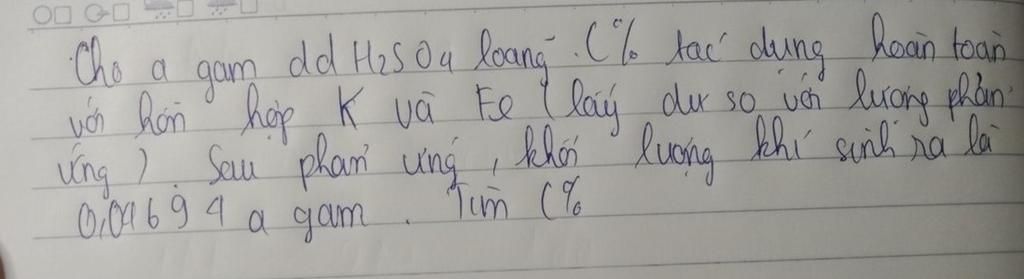 Cho a gam dd H2SO4 loãng C% tác dụng hoàn toàn
với hỗn hợp K và Fe (lấy dư so với lượng phản
ứng). Sau phản ứng, khối lượng khí sinh ra là
0,04694 a gam. Tìm C%